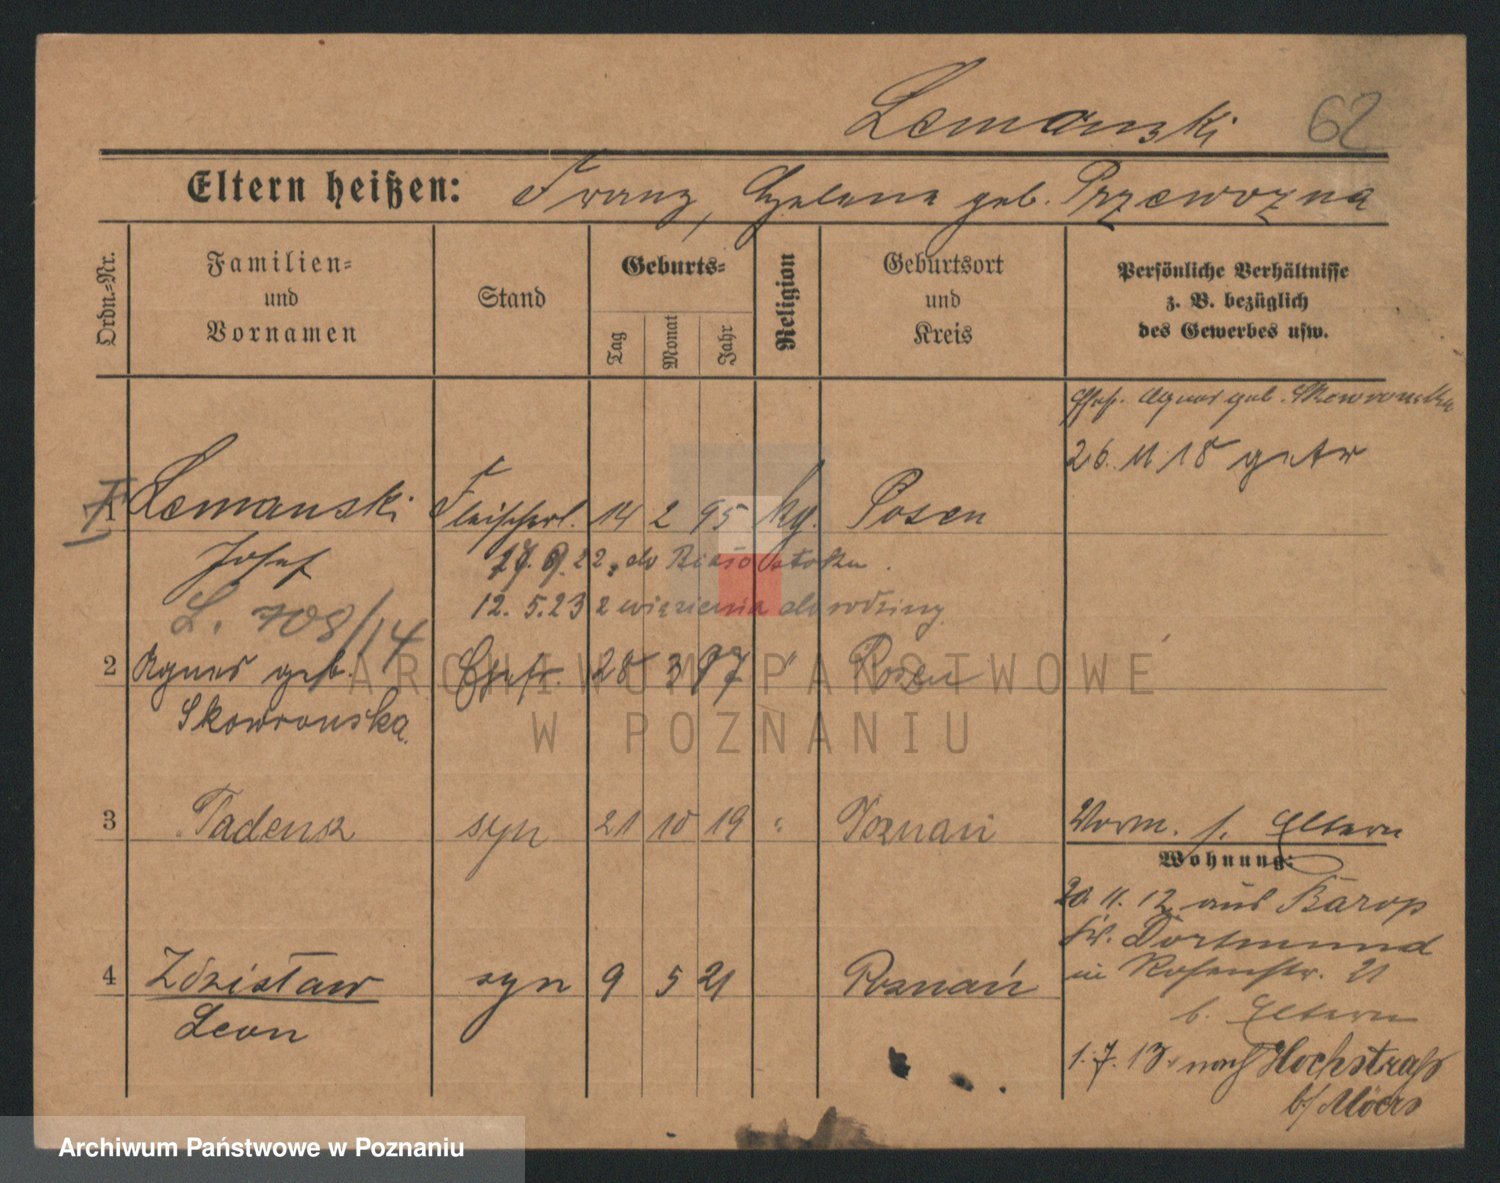 Lemanski 62
Eltern heißen: Franz, Helena geb. Przewozna
Ordn.-Nr.
Familien-
und
Vornamen
Stand
Geburts-
Tag
Monat
Jahr
Religion
Geburtsort
und
Kreis
Persönliche Verhältnisse
z. B. bezüglich
des Gewerbes usw.
Ehef. Agnes geb. Skowronska
26. 11. 18 getr
1 Lemanski Fleischerl. 14 2 95 kg. Posen
Josef
9.22. do Białostoku.
12. 5.23 z więzienia do rodziny
L. 708/14
2 Agnes geb. Ehefr. 28 3 97 " Posen
Skowronska.
3 Tadeusz syn 21 10 19 " Poznań
Vorm. s. Eltern
Wohnung:
20. 11. 12 aus Barop
Kr. Dortmund
in Rosenstr. 21
b. Eltern
4 Zdzisław syn 9 5 21 Poznań
Leon
1. 7. 13. nach Hochstraß
b/ Möers
ARCHIWUM PAŃSTWOWE
W POZNANIU
Archiwum Państwowe w Poznaniu